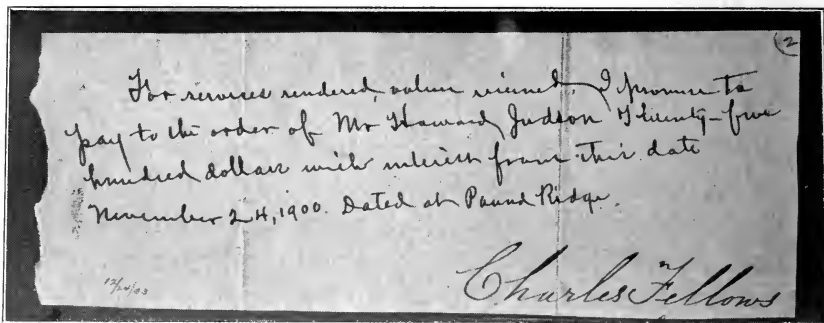 2
For services rendered, value received, I promise to
pay to the order of Mr Howard Judson Twenty-five
hundred dollars with interest from this date
November 24, 1900. Dated at Pound Ridge.
Charles Fellows
12/24/03